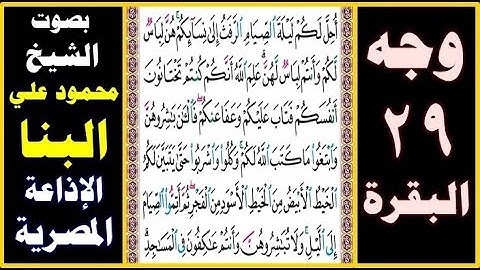 وجه
٢٩
البقرة
أُحِلَّ لَكُمْ لَيْلَةَ الصِّيَامِ الرَّفَثُ إِلَىٰ نِسَآئِكُمْ هُنَّ لِبَاسٌ
لَّكُمْ وَأَنتُمْ لِبَاسٌ لَّهُنَّ عَلِمَ اللَّهُ أَنَّكُمْ كُنتُمْ تَخْتَانُونَ
أَنفُسَكُمْ فَتَابَ عَلَيْكُمْ وَعَفَا عَنكُمْ فَالْـَٔنَ بَٰشِرُوهُنَّ
وَابْتَغُوا مَا كَتَبَ اللَّهُ لَكُمْ وَكُلُوا وَاشْرَبُوا حَتَّىٰ يَتَبَيَّنَ لَكُمُ
الْخَيْطُ الْأَبْيَضُ مِنَ الْخَيْطِ الْأَسْوَدِ مِنَ الْفَجْرِ ثُمَّ أَتِمُّوا الصِّيَامَ
إِلَى الَّيْلِ وَلَا تُبَٰشِرُوهُنَّ وَأَنتُمْ عَٰكِفُونَ فِي الْمَسَٰجِدِ
بصوت
الشيخ
محمود علي
البنا
الإذاعة
المصرية